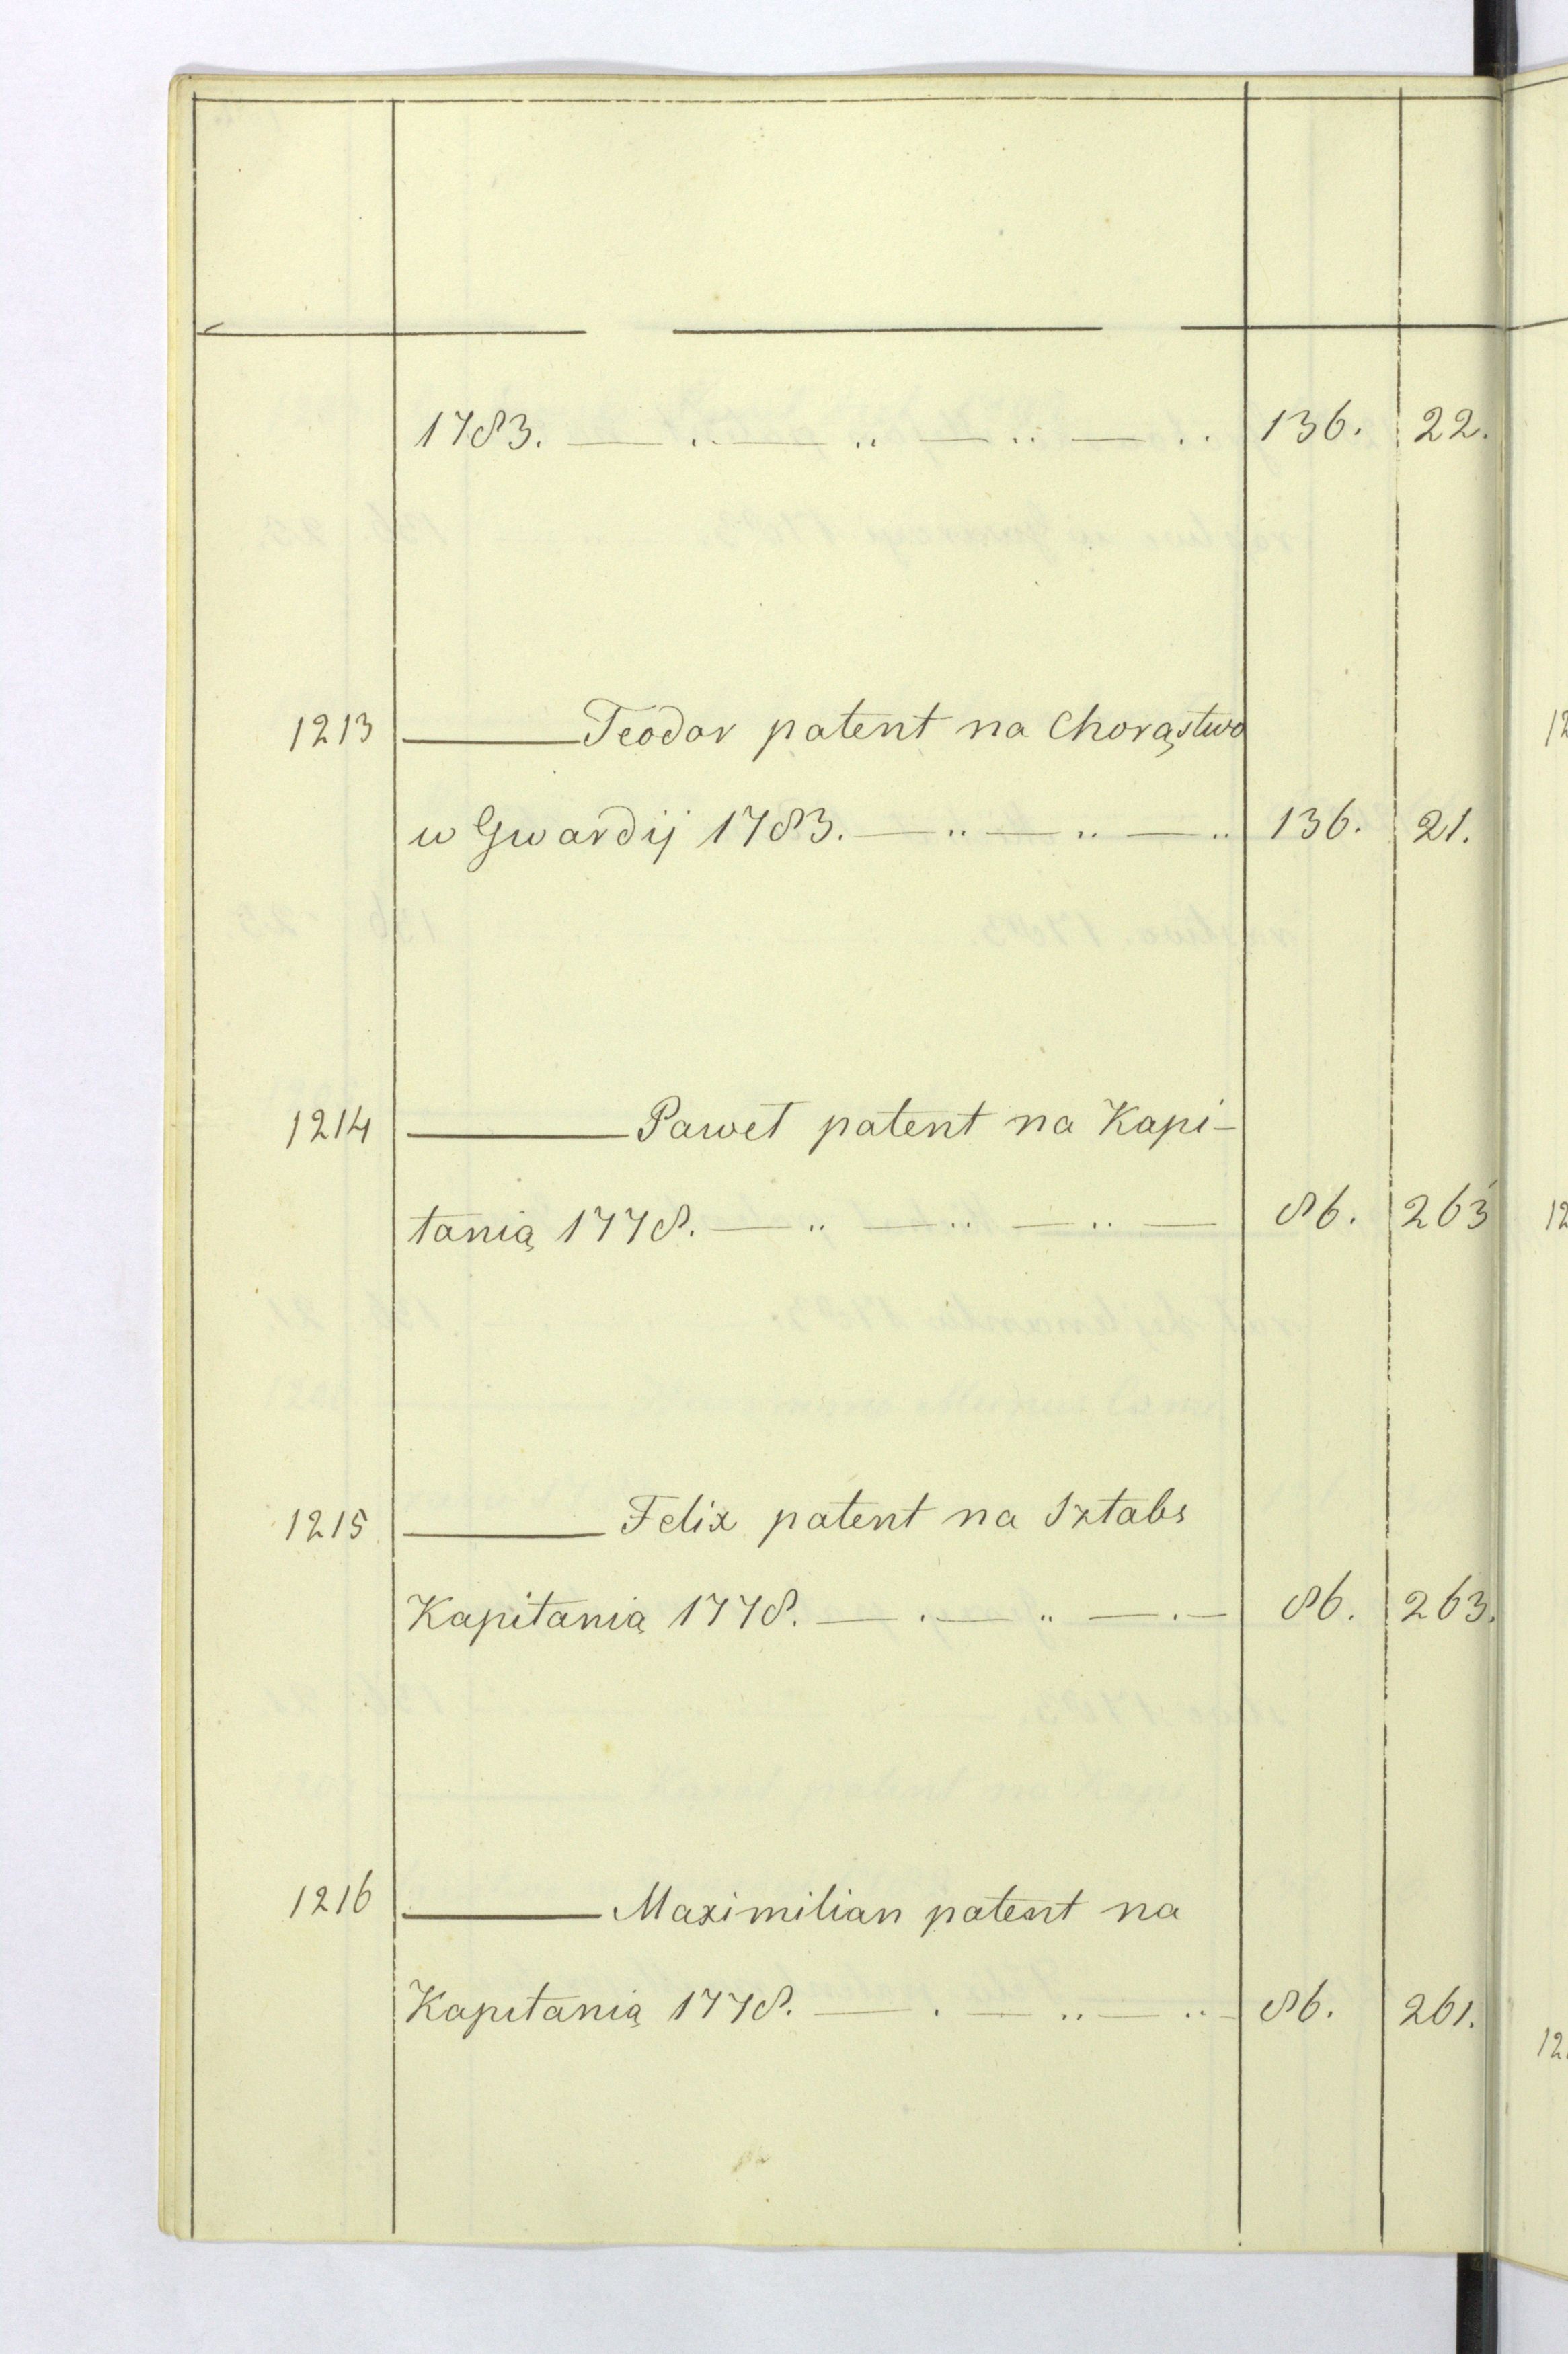 1783. — .. — .. — .. — .. 136. 22.
1213 — Teodor patent na Chorąstwo
w Gwardij 1783. — .. — .. — .. 136. 21.
1214 — Paweł patent na Kapi-
tanią 1778. — .. — .. — .. — 86. 263
1215 — Felix patent na Sztabs
Kapitanią 1778. — . — .. — . — 86. 263.
1216 — Maximilian patent na
Kapitanią 1778. — . — .. — .. — 86. 261.